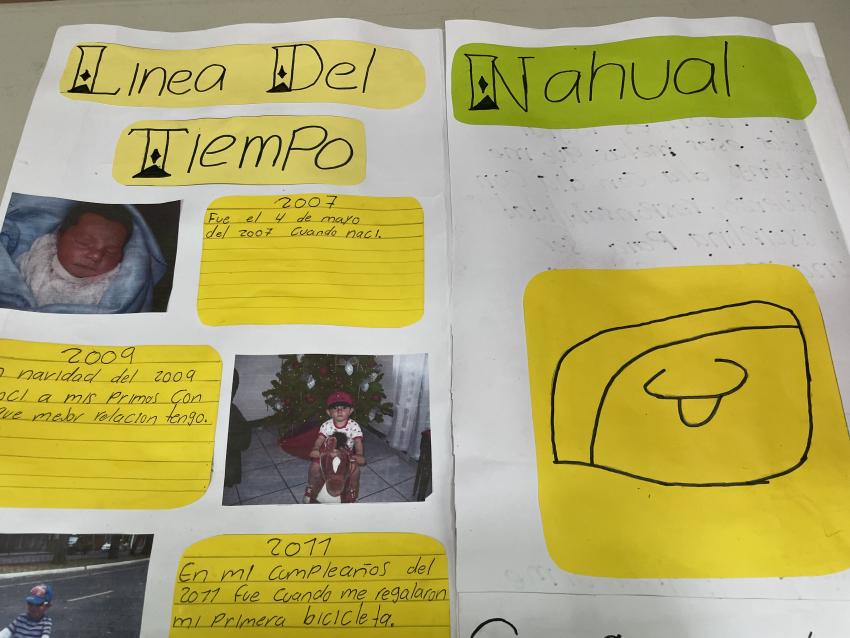 Linea Del
Tiempo
2007
Fue el 4 de mayo
del 2007 cuando naci.
2009
navidad del 2009
a mis primos con
que mejor relacion tengo.
2011
En mi cumpleaños del
2011 fue cuando me regalaron
mi primera bicicleta.
Nahual